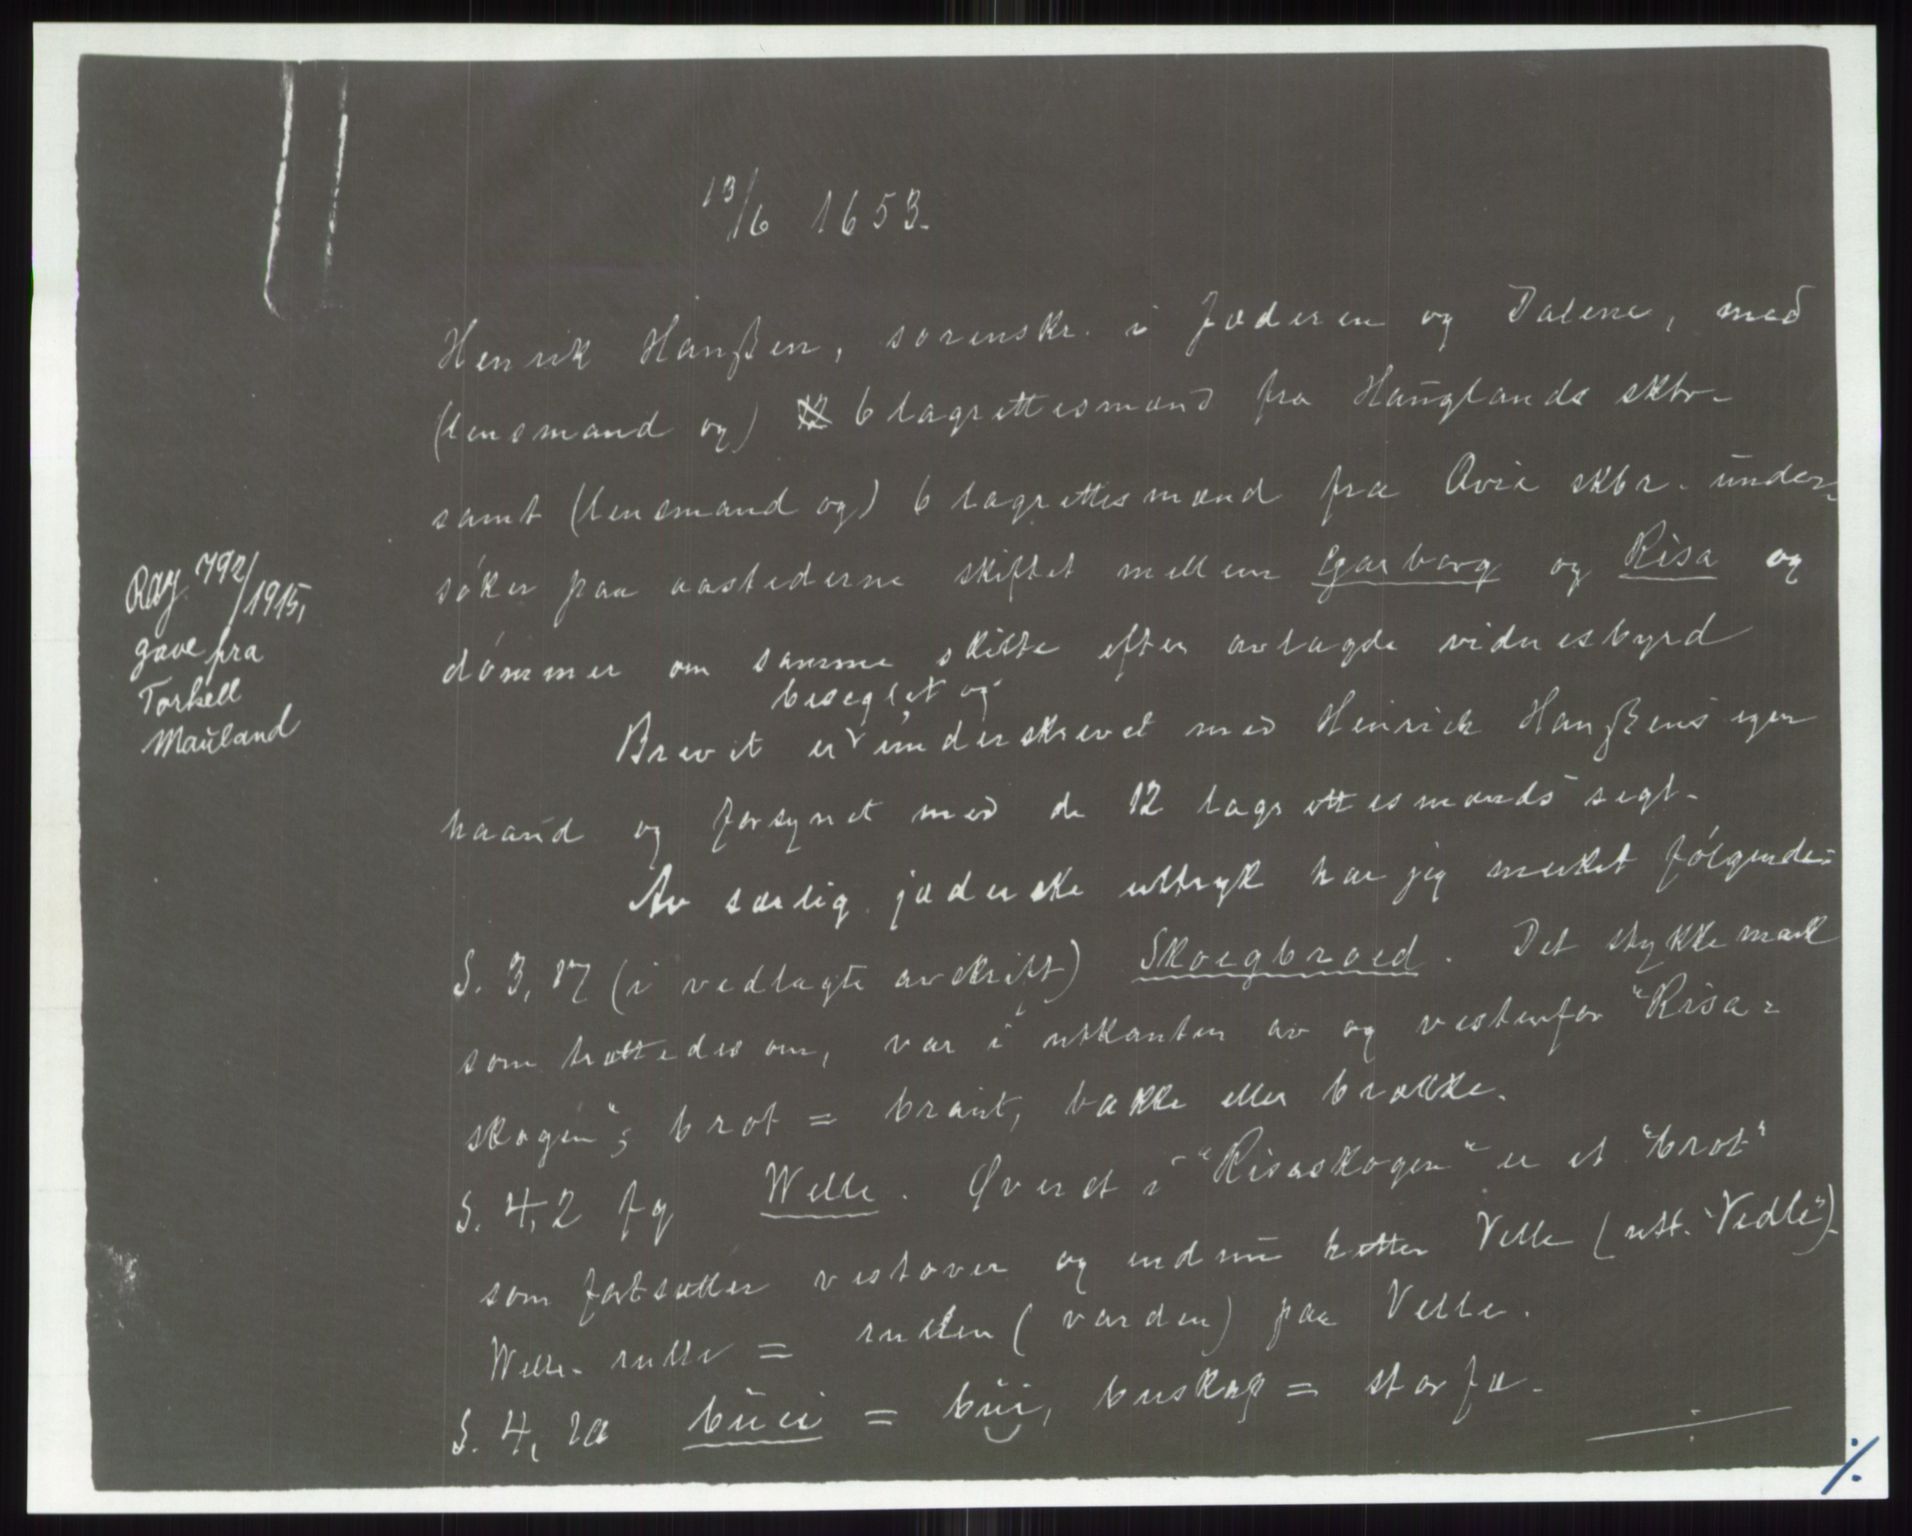 13/6 1653.
Henrik Hanßen, sorenskr. i Jæderen og Dalene, med
(lensmand og) 6 lagrettesmænd fra Hauglands skbr.
samt (lensmand og) 6 lagrettesmænd fra skbr. under-
søker paa aastederne skiftet mellem Garborg og Risa og
dømmer om samme skifte efter avlagde vidnesbyrd
beseglet og
Brevet er underskrevet med Heinrich Hanßens egen
haand og forsynet med de 12 lagrettesmænds segl.
Av særlig jæderske uttryk har jeg merket følgende:
S. 3, 17 (i vedlagte avskrift) Skoegbroed. Det stykke mark
som trættedes om, var i utkanten av og vestenfor "Risa-
skogen"; brot = braut, bakke eller brække.
S. 4,2 fg Welle. Øverst i "Risaskogen" er et "brot"
som fortsætter vestover og endnu hetter Velle (utt. "Vedle").
Welle- = (varden) paa Velle.
S. 4, = buskap = storfæ.
Ray 792/1915,
gave fra
Torkell
Mauland